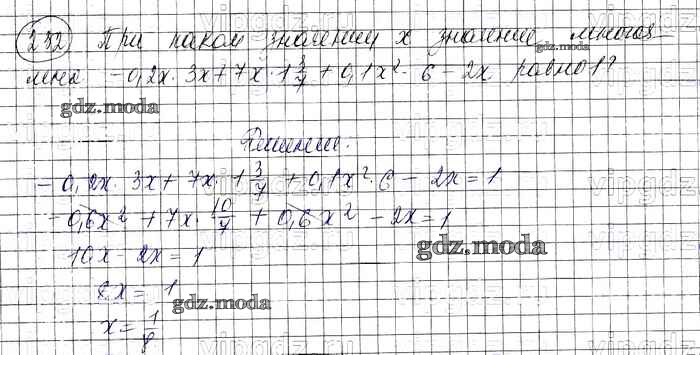 232 При каком значении x значение многоч-
лена -0,2x · 3x + 7x · 1 3/7 + 0,1x² · 6 - 2x равно 1?
gdz.moda
gdz.moda
Решение.
- 0,2x · 3x + 7x · 1 3/7 + 0,1x² · 6 - 2x = 1
- 0,6x² + 7x · 10/7 + 0,6x² - 2x = 1
gdz.moda
10x - 2x = 1
8x = 1
gdz.moda
x = 1/8
vipgdz.ru